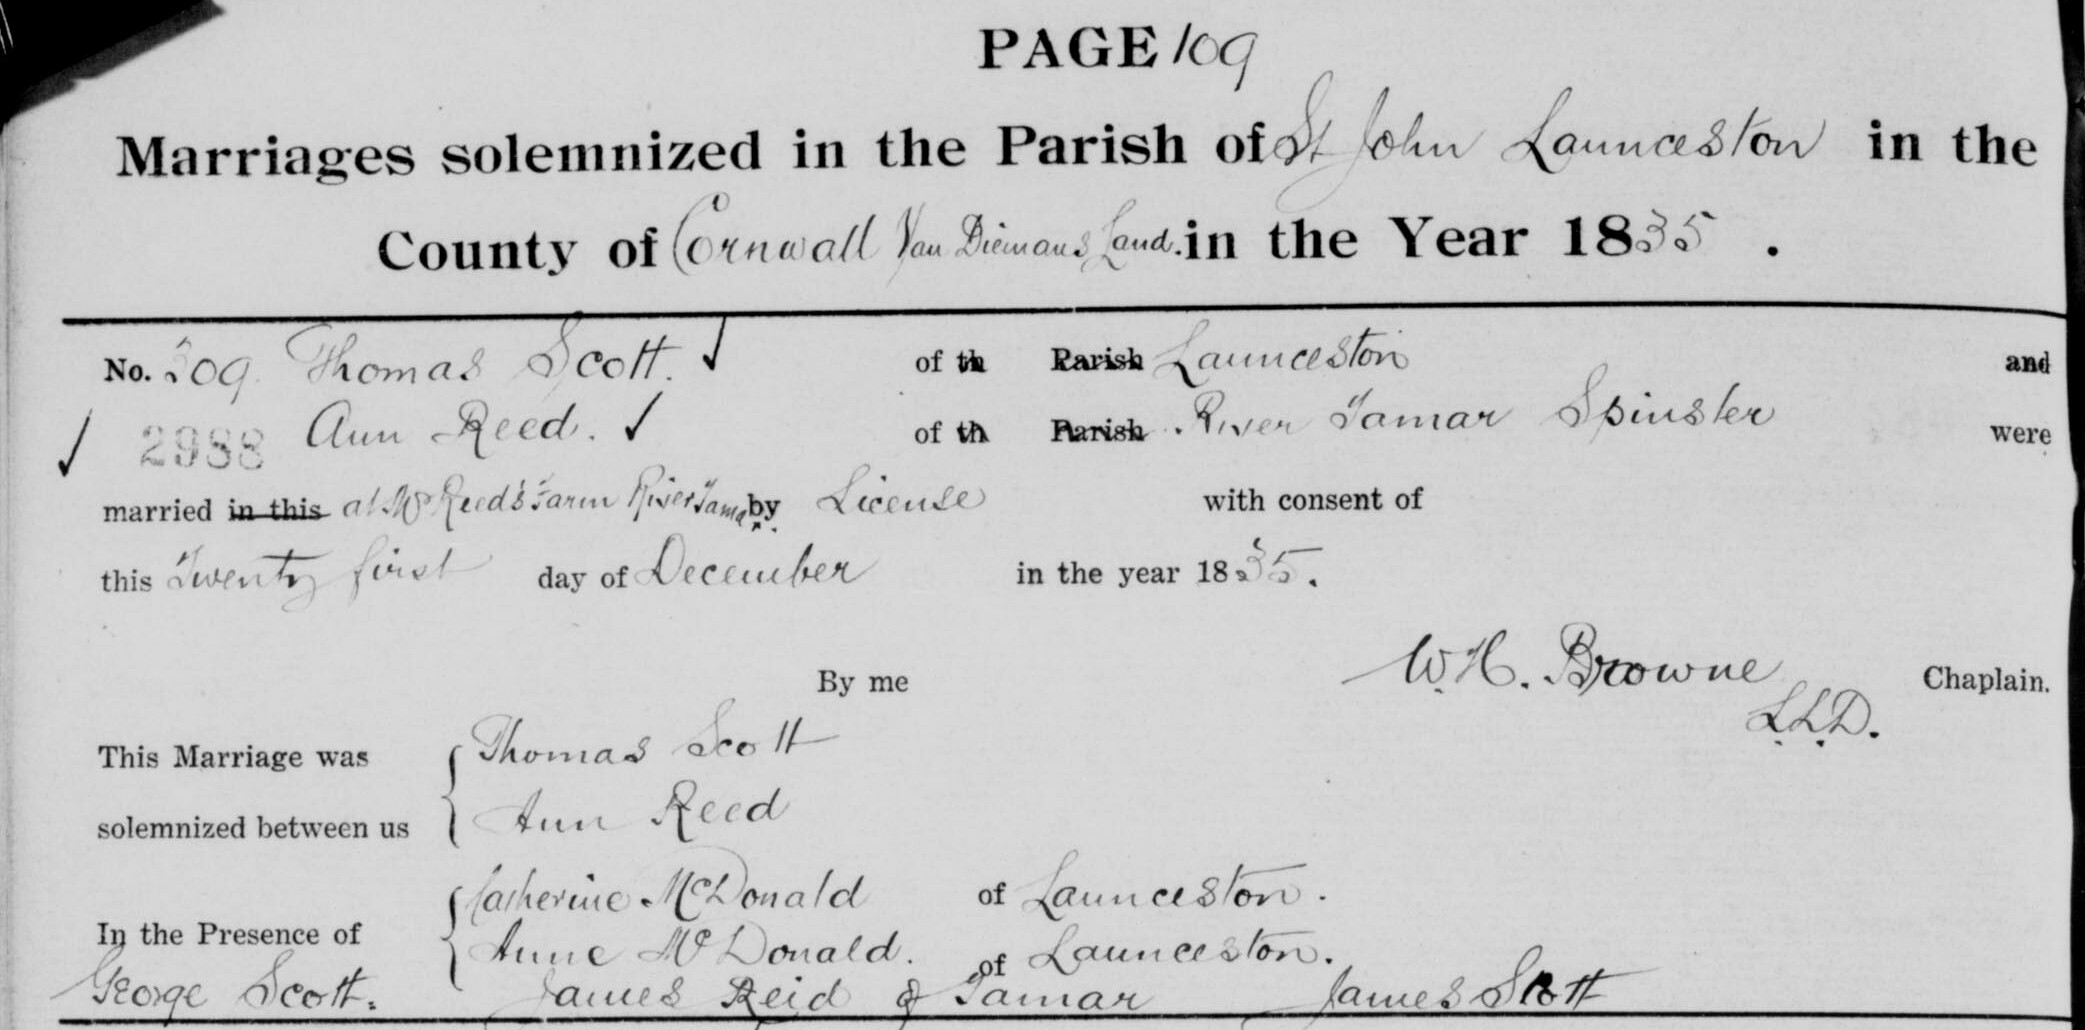 PAGE 109
Marriages solemnized in the Parish of St John Launceston in the
County of Cornwall Van Diemans Land. in the Year 1835 .
No. 309. Thomas Scott. ✓ of th Parish Launceston and
✓ 2988 Ann Reed. ✓ of th Parish River Tamar Spinster were
married in this at Mr Reed's Farm River Tamar by License with consent of
this Twenty first day of December in the year 1835.
By me W. H. Browne Chaplain.
L.L.D.
This Marriage was { Thomas Scott
solemnized between us { Ann Reed
{ Catherine McDonald of Launceston.
In the Presence of { Anne McDonald. of Launceston.
George Scott. James Reid of Tamar James Scott